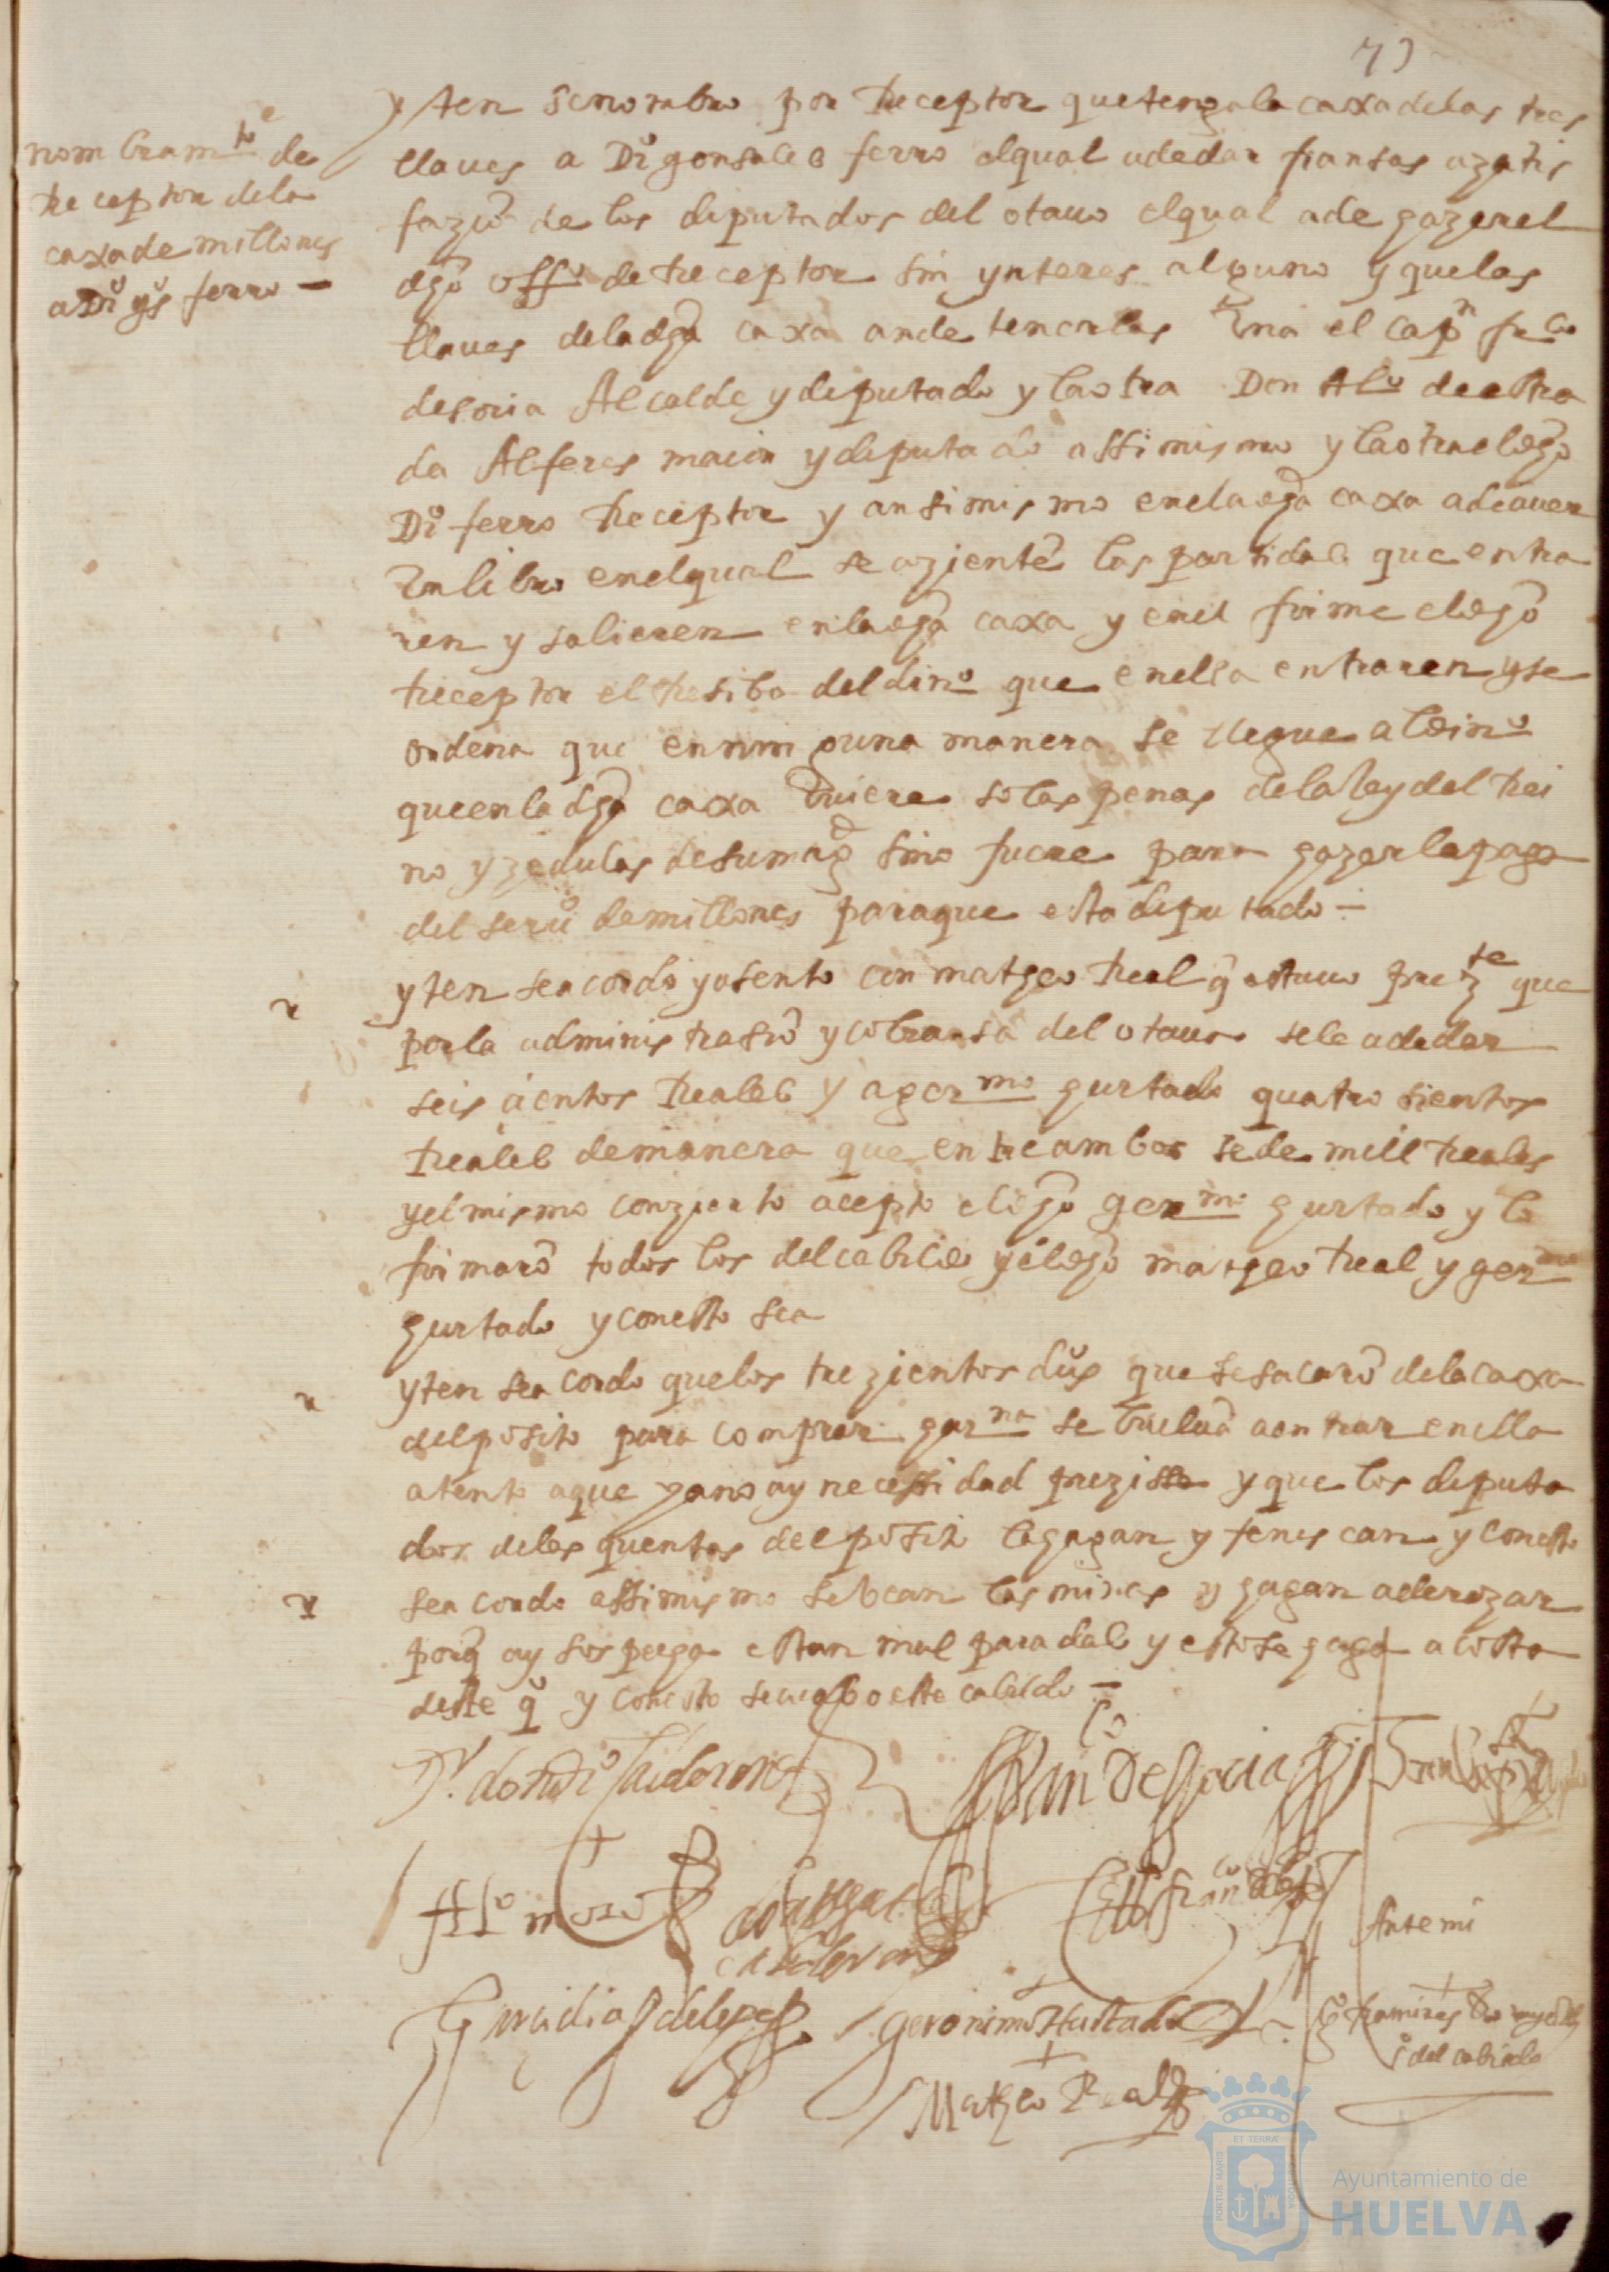 73
nombram^to de
Receptor dela
caxa de millones
a Dı͂º gs ferro —
yten se nombro por Receptor que tenga la caxa de las tres
llaues a Dº gonsales ferro el qual a de dar fiansas a zatis
fazıõ de los diputados del otauo el qual a de hazer el
dhõ offº de Receptor sin ynteres alguno y que las
llaues de la dhã caxa an de tenerlas Vna el capᵐ fr^co
de soria Alcalde y diputado y la otra Don Alº de estra
da Alferes maior y diputado assimismo y la otra el dhõ
Dº ferro Receptor y ansimismo en la dhã caxa a de auer
Vn libro en el qual se azientẽ las partidas que entra
ren y salieren en la dhã caxa y en el firme el dhõ
Receptor el Resibo del dinº que en ella entraren y se
ordena que en ninguna manera se llegue al dinº
que en la dhã caxa Vuiere so las penas de la ley del Rei
no y zedulas de su mag^d sino fuere para hazer la paga
del seruº de millones para que esta diputado —
yten se acordo y asento con matheo Real q̃ estauo prez^te que
por la administrasiõ y cobransa del otauo se le a de dar
seis cientos Reales y a ger^mo hurtado quatro sientos
Reales de manera que entre ambos se de mill Reales
y el mismo conzierto acepto el dhõ ger^mo hurtado y lo
firmarõ todos los del cabildo y el dhõ matheo Real y ger^mo
hurtado y con esto sea
yten se acordo que los trezientos dus que se sacarõ de la caxa
del posito para comprar har^na se Vueluã a entrar en ella
atento a que ya no ay necessidad prezissa y que los diputa
dos de las quentas del posito la hagan y fenescan y con esto
se acordo assimismo se bean las minas y hagan aderezar
porq̃ ay sospecha estan mal paradas y esto se haga a costa
deste qº y con esto se acabo este cabildo —
Fr^co de soria
Alº
Calderon
Ante mi
Geronimo Hurtado
Ramires
sº del cabildo
Matheo Real
PORTUS MARIS
ET TERRÆ
CUSTODIA
Ayuntamiento de
HUELVA